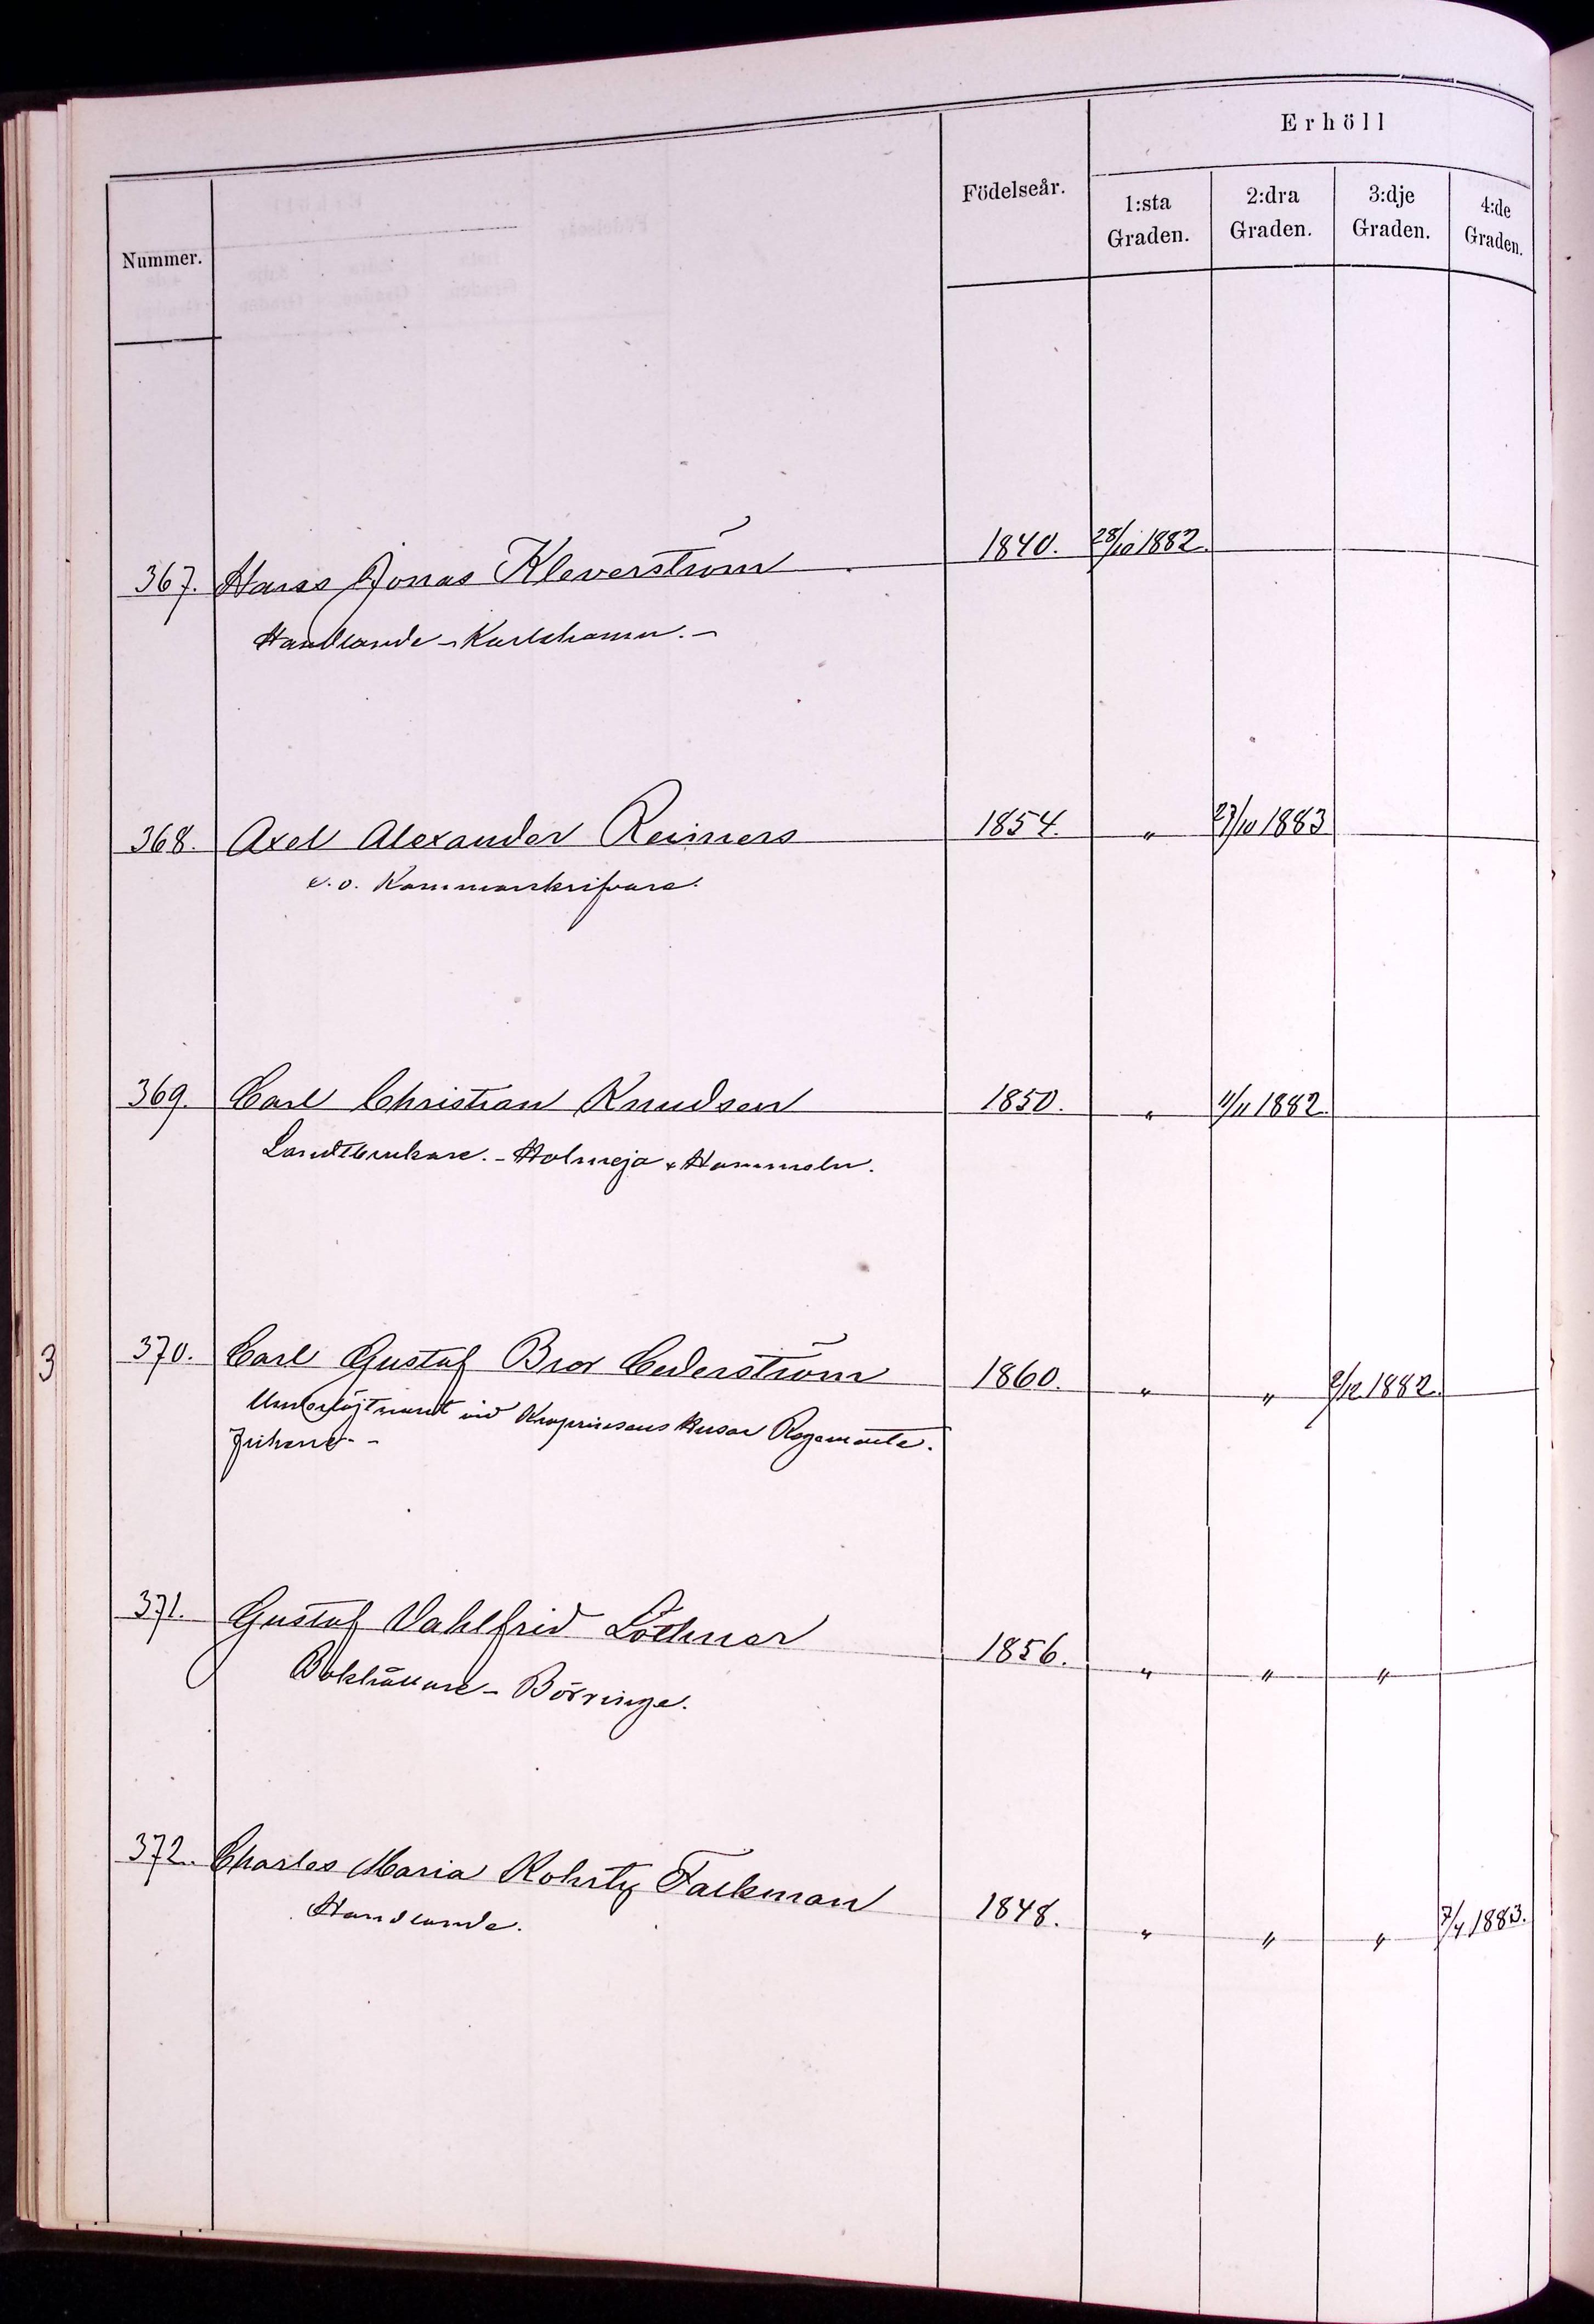 Erhöll
Nummer. Födelseår. 1:sta Graden. 2:dra Graden. 3:dje Graden. 4:de Graden.
367. Hans Jonas Kleverström 1840. 28/10 1882.
Handlande - Karlshamn. -
368. Axel Alexander Reimers 1854. " 27/10 1883
e. o. Kammarskrifvare.
369. Carl Christian Knudsen 1850. " 11/11 1882.
Landtbrukare. - Holmeja
370. Carl Gustaf Bror Cederström 1860. " " 2/12 1882.
Underlöjtnant vid Kronprinsens Husar Regemente.
Friherre -
3
371. Gustaf Vahlfrid Löthner 1856. " " "
Bokhållare - Börringe.
372. Charles Maria Falkman 1848. " " " 7/4 1883.
Handlande.